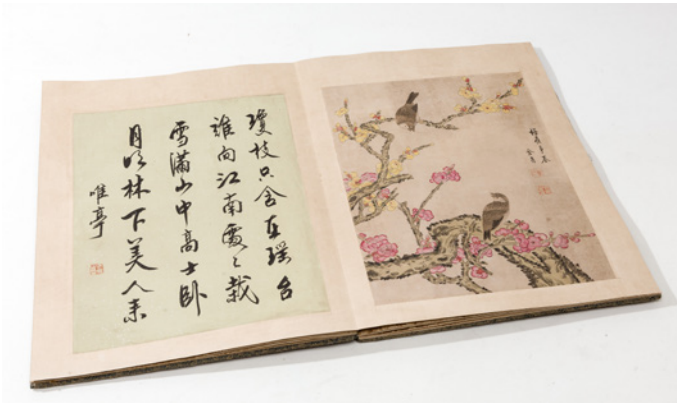 瓊枝只合在瑶台
誰向江南處々栽
雪滿山中高士卧
月明林下美人来
唯亭